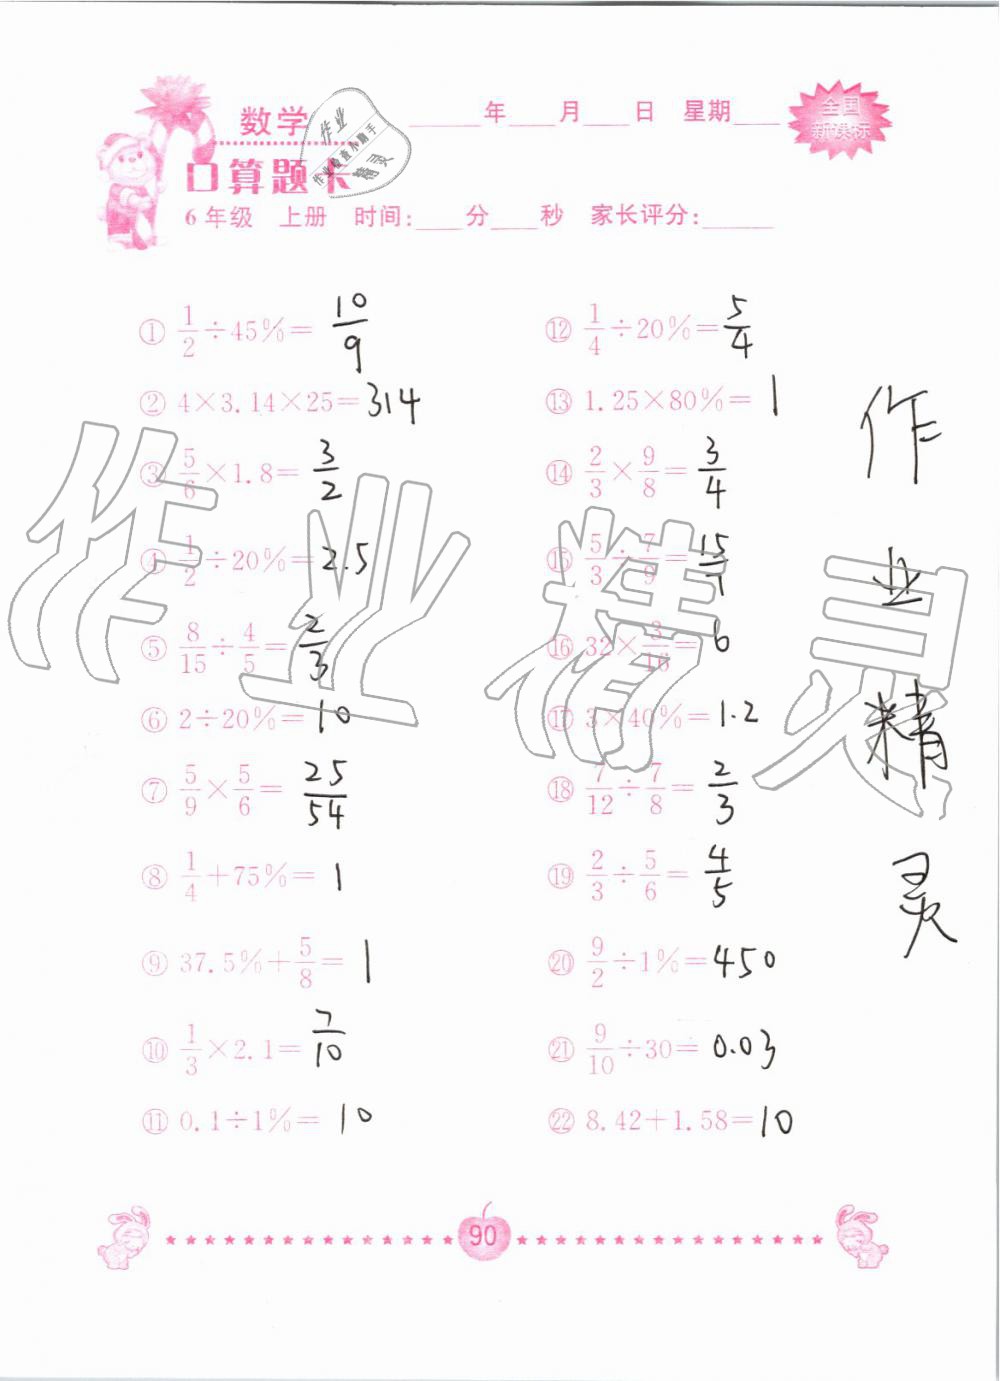 数学 ____年____月____日 星期____
全国
新课标
作业
作业检查小助手
精灵
口算题卡
6年级 上册 时间:____分____秒 家长评分:______
① 1/2÷45%= 10/9
② 4×3.14×25=314
③ 5/6×1.8= 3/2
④ 1/2÷20%=2.5
⑤ 8/15÷4/5= 2/3
⑥ 2÷20%=10
⑦ 5/9×5/6= 25/54
⑧ 1/4+75%= 1
⑨ 37.5%+5/8= 1
⑩ 1/3×2.1= 7/10
⑪ 0.1÷1%= 10
⑫ 1/4÷20%=5/4
⑬ 1.25×80%= 1
⑭ 2/3×9/8= 3/4
⑮ 5/3÷7/9= 15/7
⑯ 32×3/16= 6
⑰ 3×40%=1.2
⑱ 7/12÷7/8= 2/3
⑲ 2/3÷5/6= 4/5
⑳ 9/2÷1%=450
㉑ 9/10÷30= 0.03
㉒ 8.42+1.58=10
作
业
精
灵
作业精灵
90